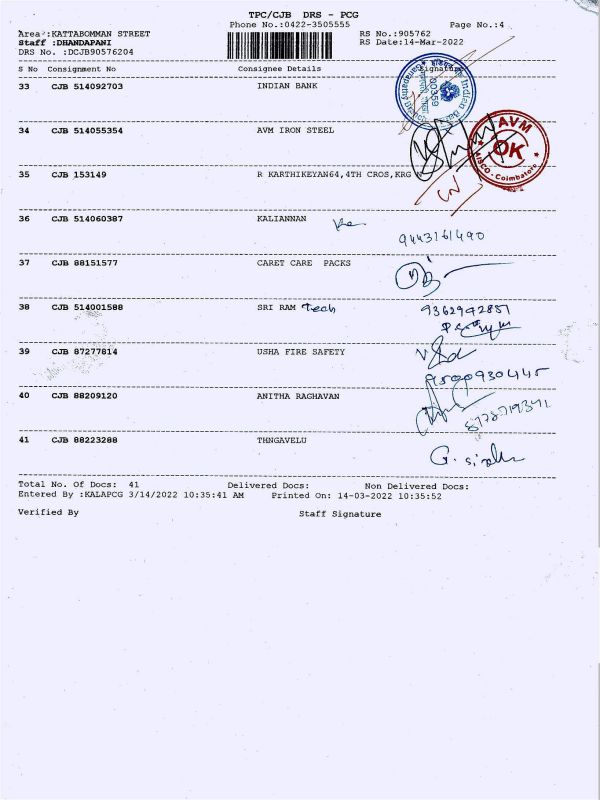 TPC/CJB DRS - PCG
Phone No.:0422-3505555 Page No.:4
Area :KATTABOMMAN STREET RS No.:905762
Staff :DHANDAPANI RS Date:14-Mar-2022
DRS No. :DCJB90576204
S No Consignment No Consignee Details Signature
33 CJB 514092703 INDIAN BANK
00359
34 CJB 514055354 AVM IRON STEEL
AVM
OK
Coimbatore
35 CJB 153149 R KARTHIKEYAN64,4TH CROS,KRG
36 CJB 514060387 KALIANNAN
9443161490
37 CJB 88151577 CARET CARE PACKS
38 CJB 514001588 SRI RAM Tech 9362942851
39 CJB 87277814 USHA FIRE SAFETY
40 CJB 88209120 ANITHA RAGHAVAN
41 CJB 88223288 THNGAVELU
Total No. Of Docs: 41 Delivered Docs: Non Delivered Docs:
Entered By :KALAPCG 3/14/2022 10:35:41 AM Printed On: 14-03-2022 10:35:52
Verified By Staff Signature